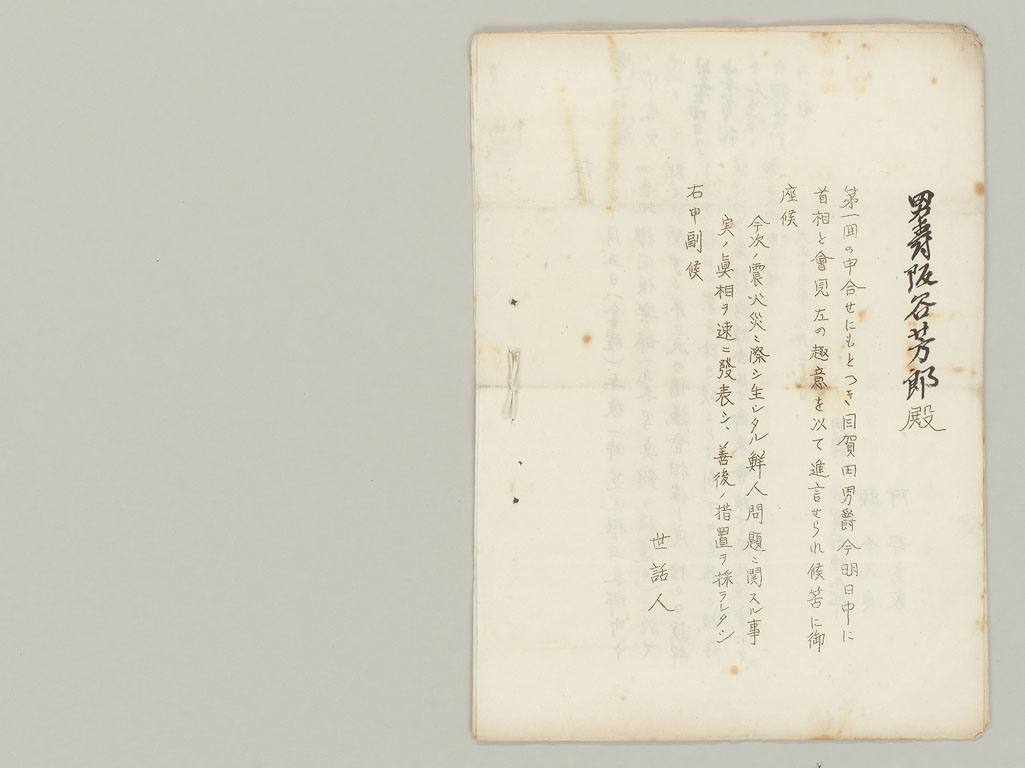 男爵阪谷芳郎殿
第一囬の申合せにもとつき目賀田男爵今明日中に
首相と會見左の趣意を以て進言せられ候筈に御
座候
今次ノ震火災ニ際シ生シタル鮮人問題ニ関スル事
実ノ眞相ヲ速ニ發表シ、善後ノ措置ヲ採ラレタシ
右申副候
世話人